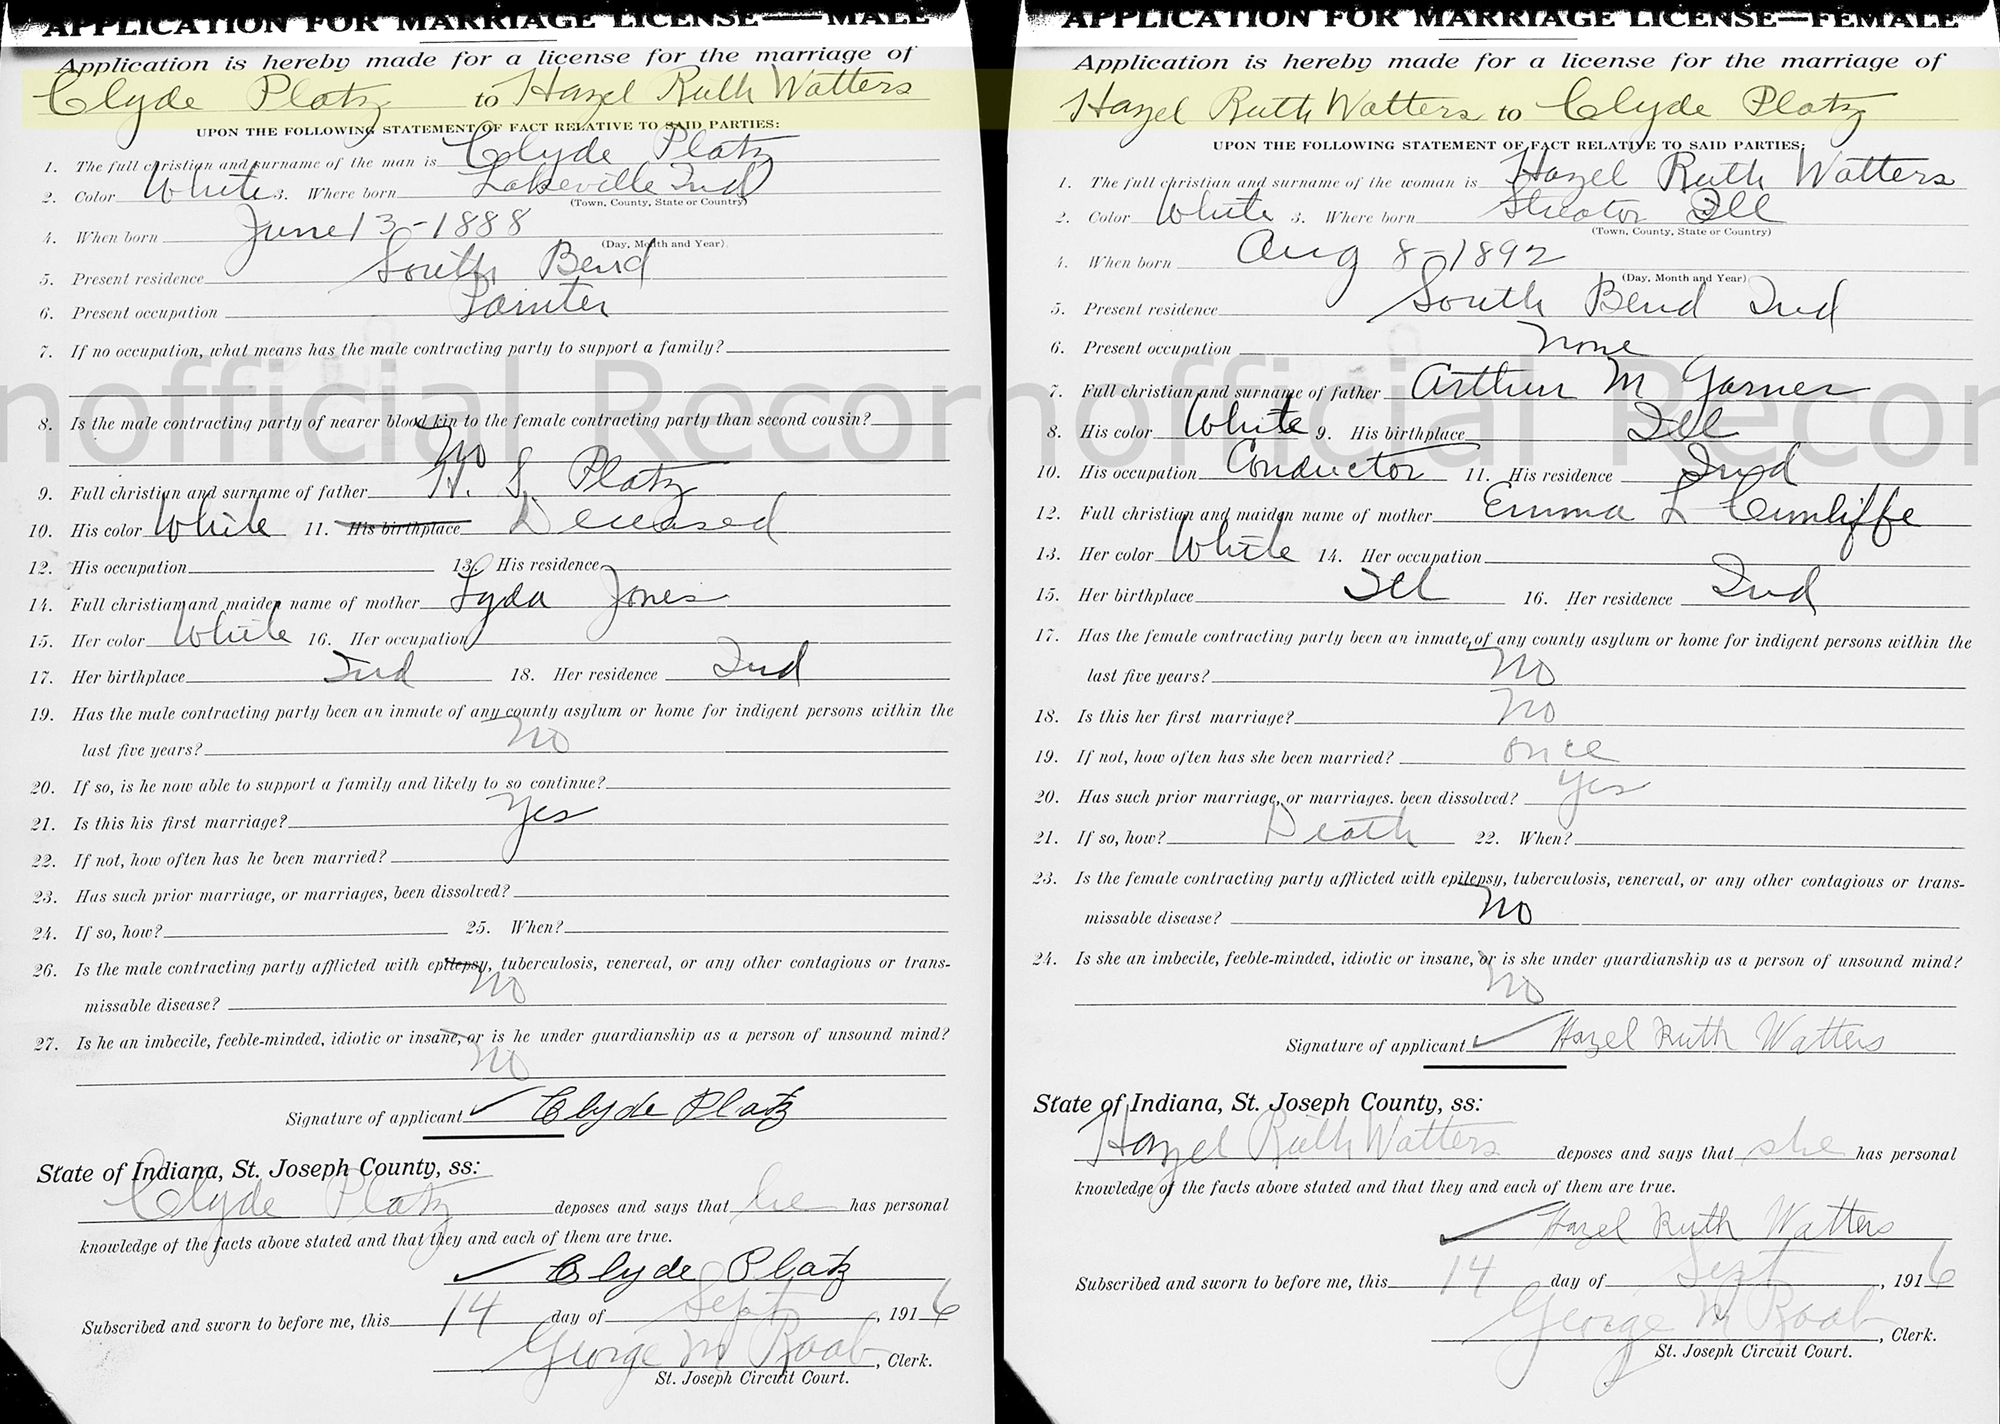 APPLICATION FOR MARRIAGE LICENSE—MALE
Application is hereby made for a license for the marriage of
Clyde Platz to Hazel Ruth Watters
UPON THE FOLLOWING STATEMENT OF FACT RELATIVE TO SAID PARTIES:
1. The full christian and surname of the man is Clyde Platz
2. Color White 3. Where born Lakeville Ind
(Town, County, State or Country)
4. When born June 13-1888
(Day, Month and Year)
5. Present residence South Bend
6. Present occupation Painter
7. If no occupation, what means has the male contracting party to support a family?
8. Is the male contracting party of nearer blood kin to the female contracting party than second cousin?
No
9. Full christian and surname of father S. Platz
10. His color White 11. His birthplace Deceased
12. His occupation 13. His residence
14. Full christian and maiden name of mother Lyda Jones
15. Her color White 16. Her occupation
17. Her birthplace Ind 18. Her residence Ind
19. Has the male contracting party been an inmate of any county asylum or home for indigent persons within the
last five years? No
20. If so, is he now able to support a family and likely to so continue?
21. Is this his first marriage? Yes
22. If not, how often has he been married?
23. Has such prior marriage, or marriages, been dissolved?
24. If so, how? 25. When?
26. Is the male contracting party afflicted with epilepsy, tuberculosis, venereal, or any other contagious or trans-
missable disease? No
27. Is he an imbecile, feeble-minded, idiotic or insane, or is he under guardianship as a person of unsound mind?
No
Signature of applicant ✓ Clyde Platz
State of Indiana, St. Joseph County, ss:
Clyde Platz deposes and says that he has personal
knowledge of the facts above stated and that they and each of them are true.
✓ Clyde Platz
Subscribed and sworn to before me, this 14 day of Sept, 1916
George M Raab, Clerk.
St. Joseph Circuit Court.
APPLICATION FOR MARRIAGE LICENSE—FEMALE
Application is hereby made for a license for the marriage of
Hazel Ruth Watters to Clyde Platz
UPON THE FOLLOWING STATEMENT OF FACT RELATIVE TO SAID PARTIES:
1. The full christian and surname of the woman is Hazel Ruth Watters
2. Color White 3. Where born Streator Ill
(Town, County, State or Country)
4. When born Aug 8-1892
(Day, Month and Year)
5. Present residence South Bend Ind
6. Present occupation None
7. Full christian and surname of father Arthur M Garner
8. His color White 9. His birthplace Ill
10. His occupation Conductor 11. His residence Ind
12. Full christian and maiden name of mother Emma L Cunliffe
13. Her color White 14. Her occupation
15. Her birthplace Ill 16. Her residence Ind
17. Has the female contracting party been an inmate of any county asylum or home for indigent persons within the
last five years? No
18. Is this her first marriage? No
19. If not, how often has she been married? once
20. Has such prior marriage, or marriages. been dissolved? Yes
21. If so, how? Death 22. When?
23. Is the female contracting party afflicted with epilepsy, tuberculosis, venereal, or any other contagious or trans-
missable disease? No
24. Is she an imbecile, feeble-minded, idiotic or insane, or is she under guardianship as a person of unsound mind?
No
Signature of applicant ✓ Hazel Ruth Watters
State of Indiana, St. Joseph County, ss:
Hazel Ruth Watters deposes and says that she has personal
knowledge of the facts above stated and that they and each of them are true.
✓ Hazel Ruth Watters
Subscribed and sworn to before me, this 14 day of Sept, 1916
George M Raab, Clerk.
St. Joseph Circuit Court.
nofficial Recor
nofficial Recor